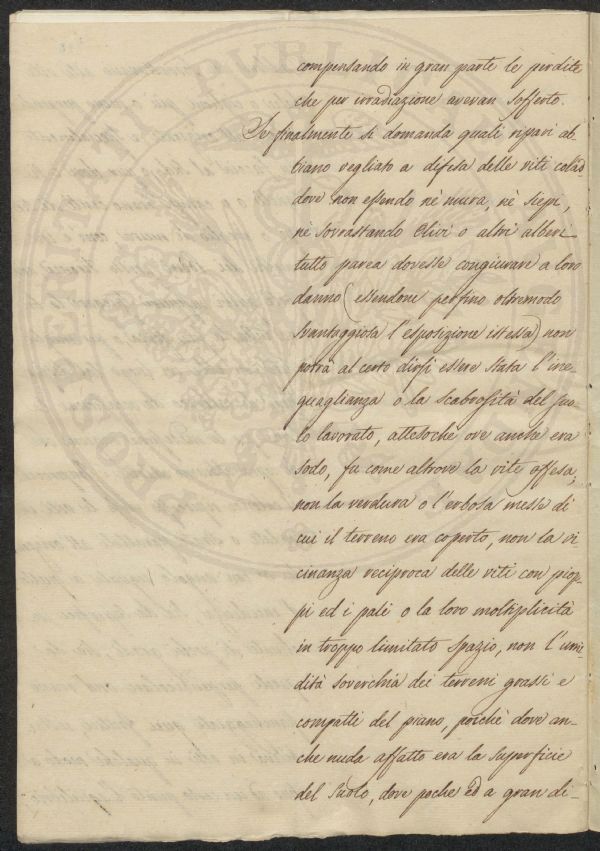 compensando in gran parte le perdite
che per irradiazione avevan sofferto.
Se finalmente si domanda quali ripari ab-
biano vegliato a difesa delle viti colà
dove non essendo nè mura, nè siepi,
nè sovrastando Olivi o altri alberi
tutto parea dovesse congiurare a loro
danno (essendone perfino oltremodo
svantaggiosa l'esposizione istessa) non
potrà al certo dirsi essere stata l'ine-
guaglianza o la scabrosità del suo-
lo lavorato, attesochè ove anche era
sodo, fu come altrove la vite offesa,
non la verdura o l'erbosa messe di
cui il terreno era coperto, non la vi-
cinanza reciproca delle viti con piop-
pi ed i pali o la loro moltiplicità
in troppo limitato spazio, non l'umi-
dità soverchia dei terreni grassi e
compatti del piano, poichè dove an-
che nuda affatto era la superficie
del suolo, dove poche ed a gran di-